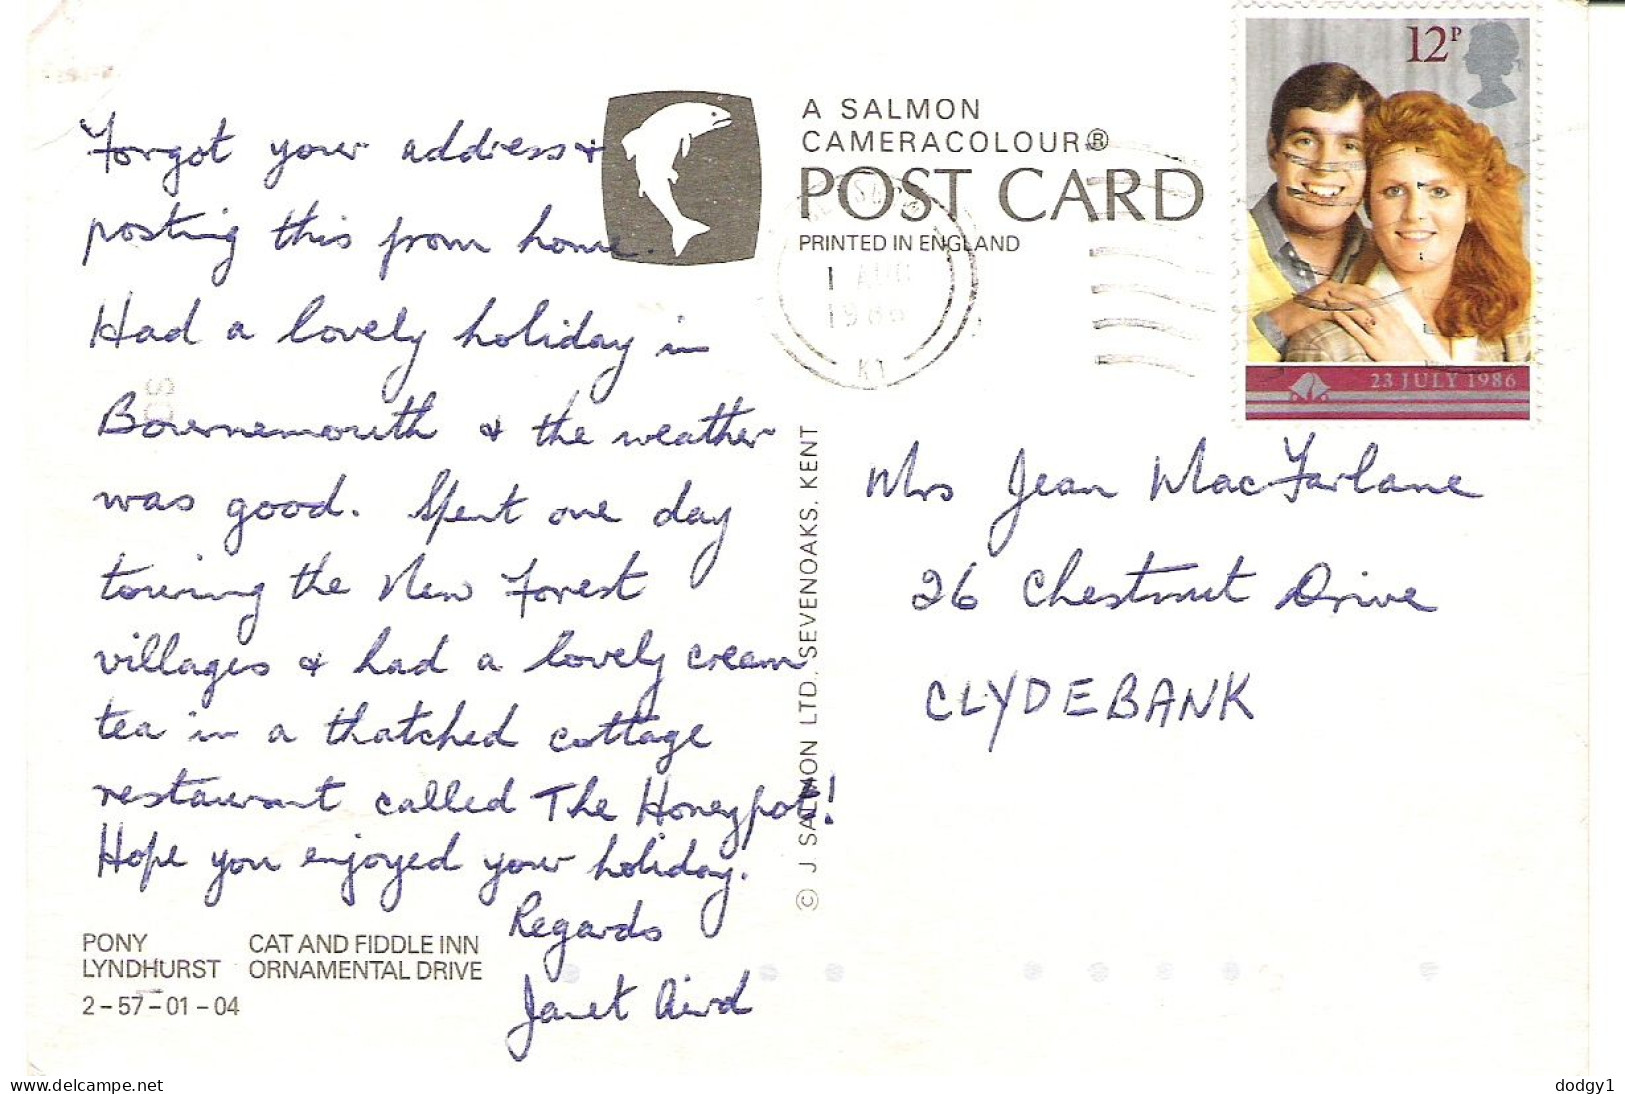 Forgot your address &
posting this from home.
Had a lovely holiday in
Bournemouth & the weather
was good. Spent one day
touring the New Forest
villages & had a lovely cream
tea in a thatched cottage
restaurant called The Honeypot!
Hope you enjoyed your holiday.
Regards
Janet Aird
PONY
LYNDHURST
CAT AND FIDDLE INN
ORNAMENTAL DRIVE
2-57-01-04
A SALMON
CAMERACOLOUR®
POST CARD
PRINTED IN ENGLAND
1 AUG
1986
K1
© J SALMON LTD., SEVENOAKS. KENT
12P
23 JULY 1986
Mrs Jean MacFarlane
26 Chestnut Drive
CLYDEBANK
www.delcampe.net
dodgy1